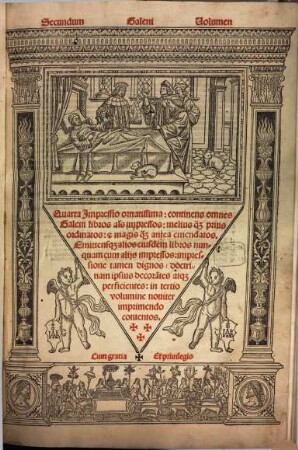 Secundum Galeni Volumen
Quarta Impressio ornatissima: continens omnes
Galeni libros alias impressos: melius qz prius
ordinatos: & magis qz antea emendatos.
Eminensqz alios eiusdem libros nun-
quam cum alijs impressos: impres-
sione tamen dignos: doctri-
nam ipsius decorātes atqz
perficientes: in tertio
volumine noviter
imprimendo
contentos.
Cum gratia Et privilegio